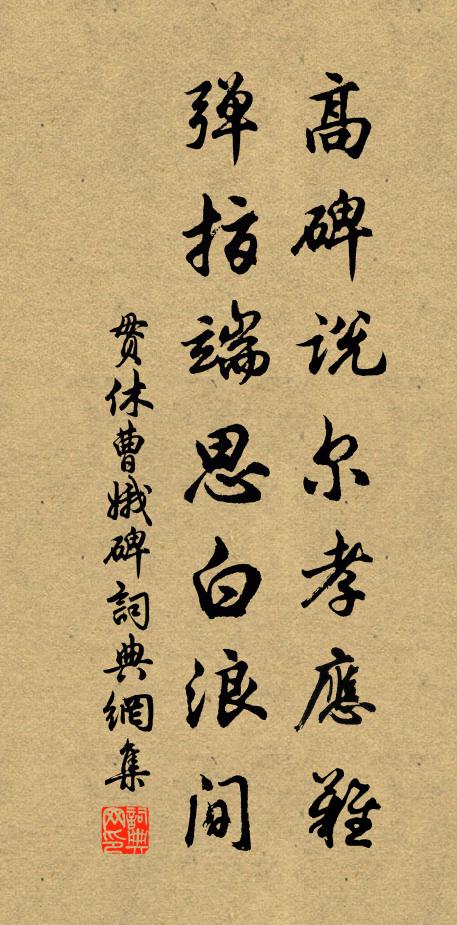 高碑说尔孝應難
弹指端思白浪间
贯休曹娥碑詞典網集
詞典网印